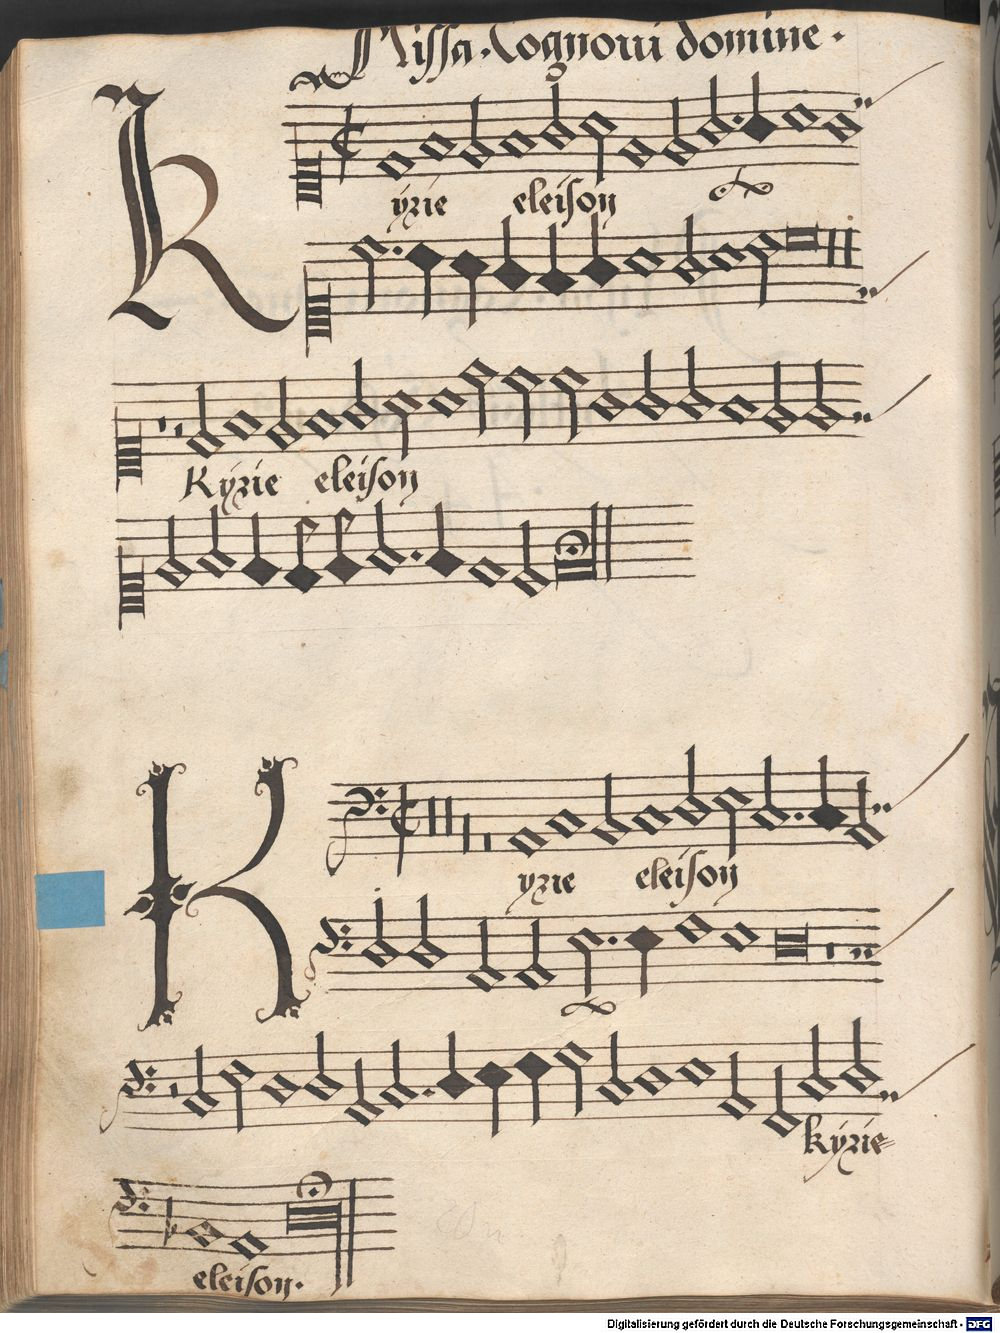 Missa. Cognovi domine.
Kyrie eleison
Kyrie eleison
Kyrie eleison
kyrie
eleison.
Digitalisierung gefördert durch die Deutsche Forschungsgemeinschaft - DFG